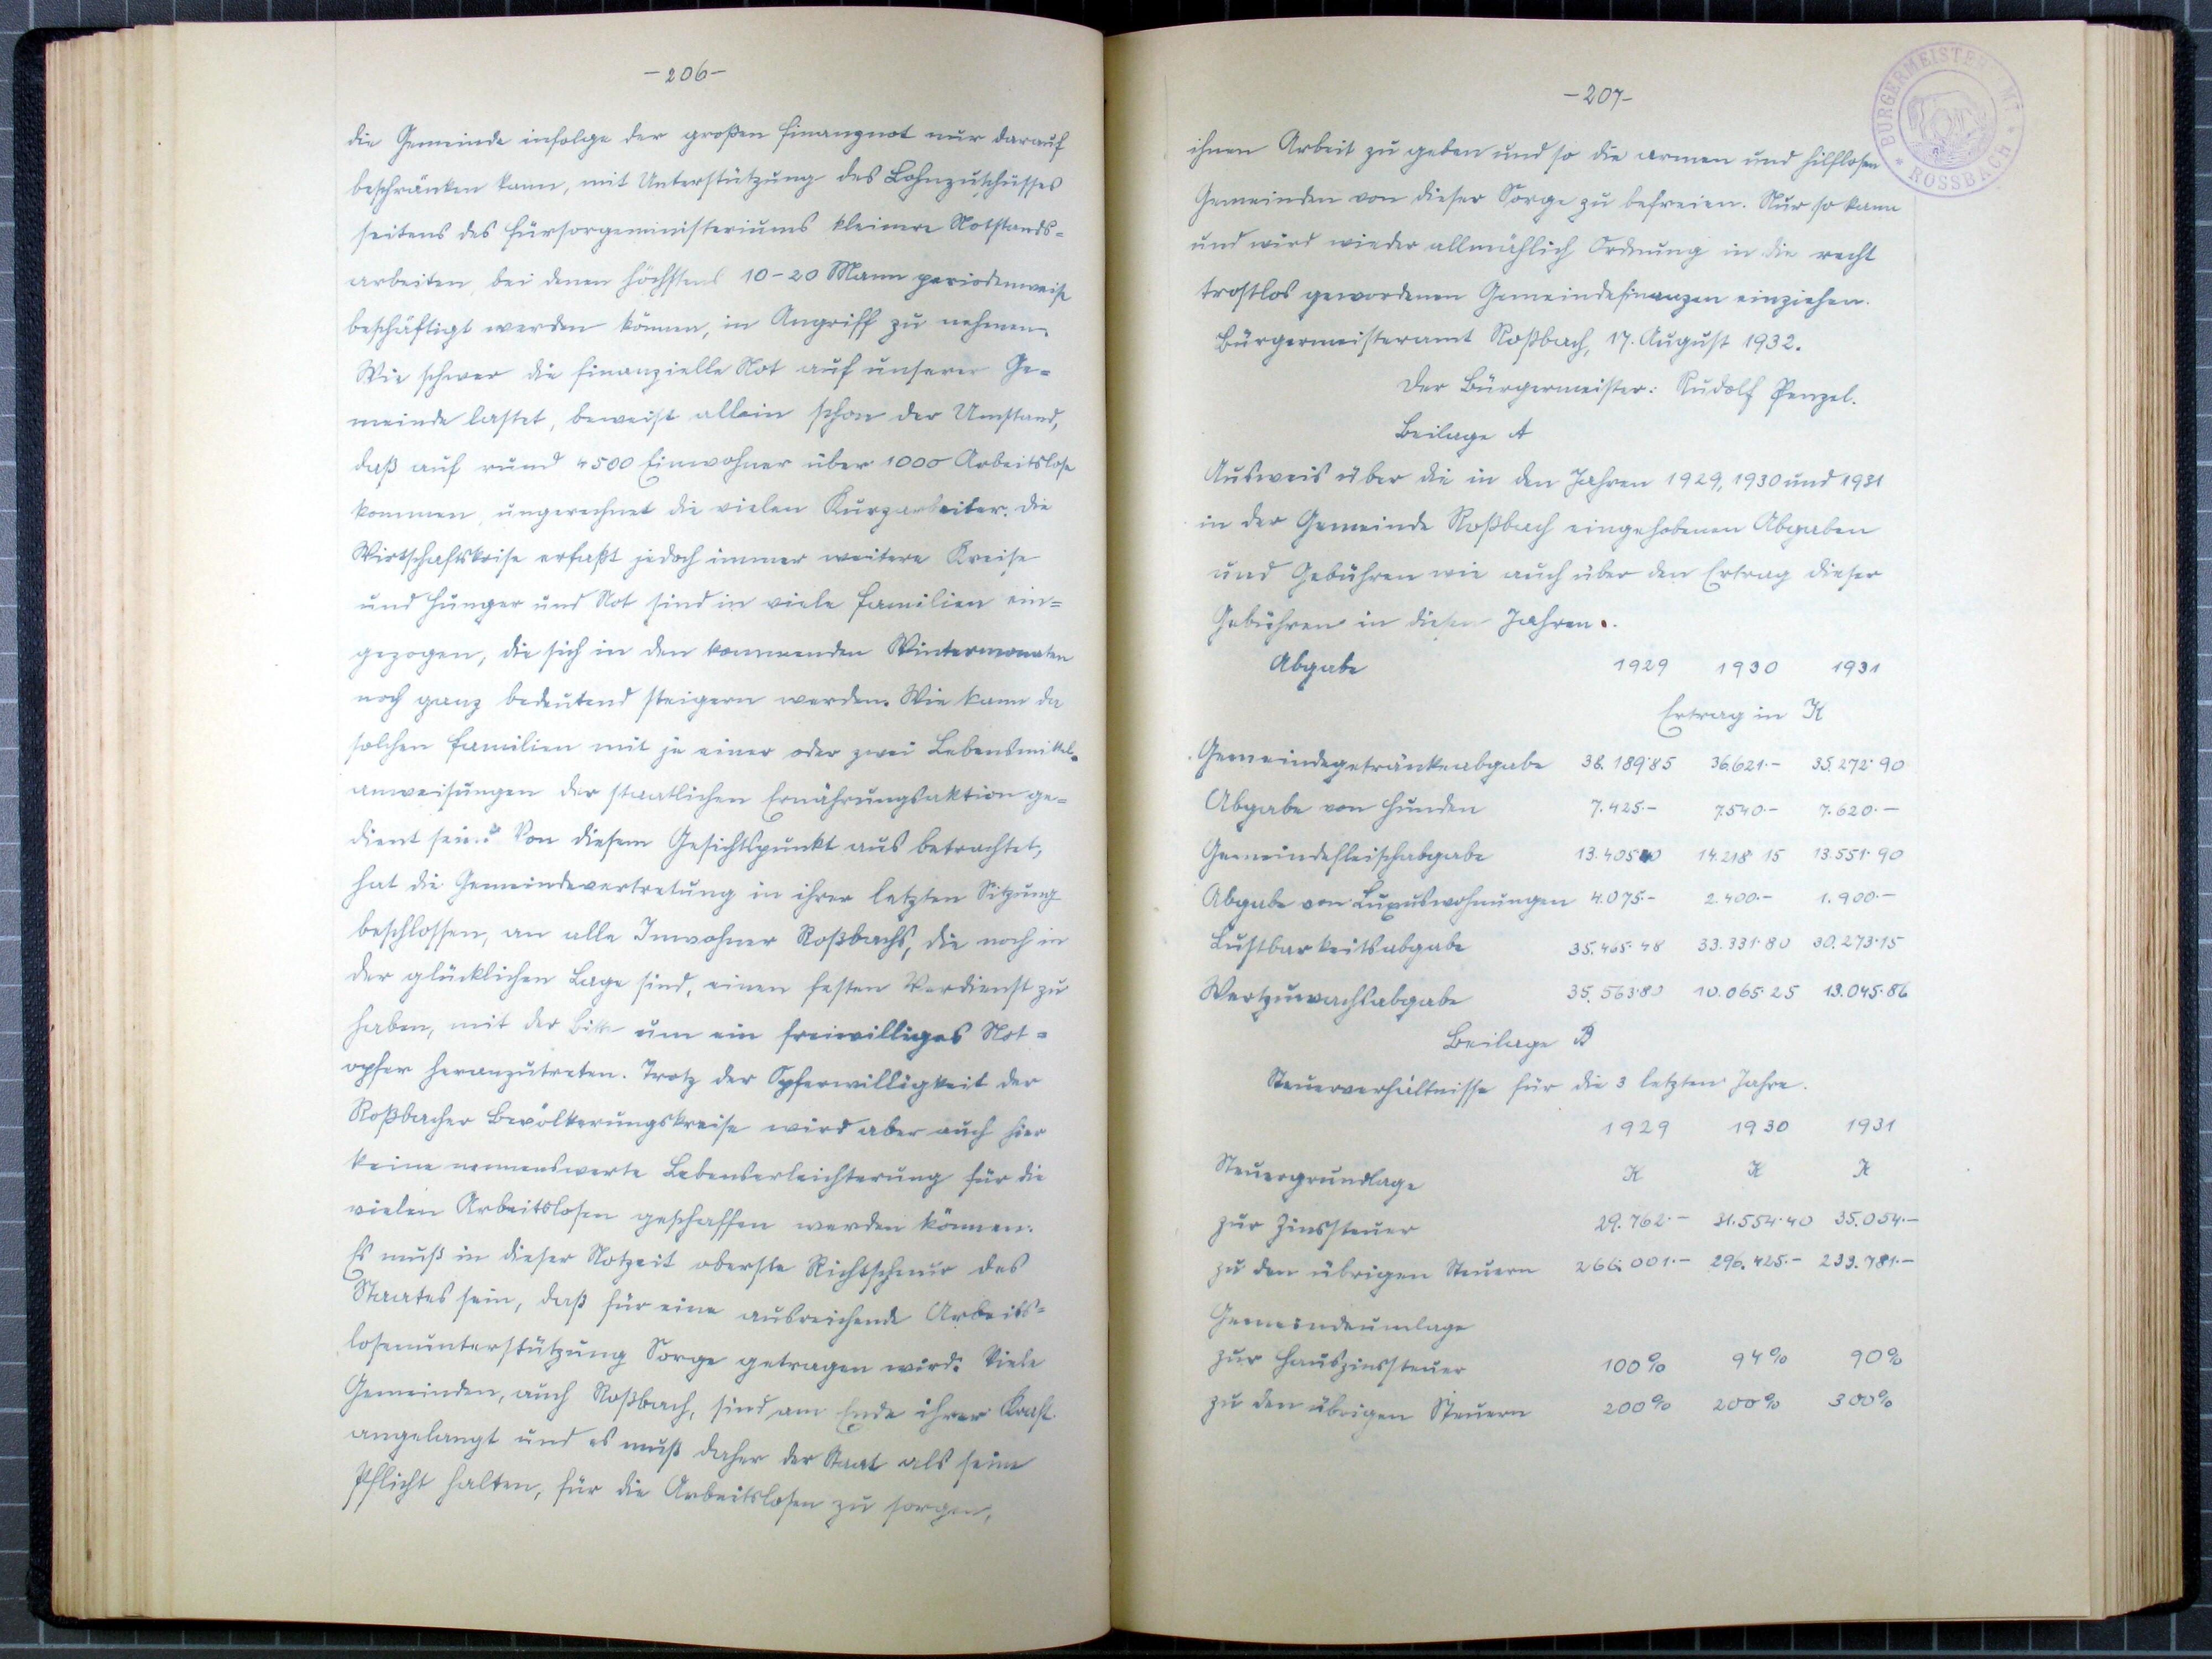 -206-
die Gemeinde infolge der großen Finanznot nur darauf
beschränken kann, mit Unterstützung des Lohnzuschusses
seitens des Fürsorgeministeriums kleinere Notstands=
arbeiten, bei denen höchstens 10-20 Mann periodenweise
beschäftigt werden können, in Angriff zu nehmen.
Wie schwer die finanzielle Not auf unserer Ge=
meinde lastet, beweist allein schon der Umstand,
daß auf rund 4500 Einwohner über 1000 Arbeitslose
kommen, ungerechnet die vielen Kurzarbeiter. Die
Wirtschaftskrise erfaßt jedoch immer weitere Kreise
und Hunger und Not sind in viele Familien ein=
gezogen, die sich in den kommenden Wintermonaten
noch ganz bedeutend steigern werden. Wie kann da
solchen Familien mit je einer oder zwei Lebensmittel=
anweisungen der staatlichen Ernährungsaktion ge=
dient sein? Von diesem Gesichtspunkt aus betrachtet,
hat die Gemeindevertretung in ihrer letzten Sitzung
beschlossen, an alle Inwohner Roßbachs, die noch in
der glücklichen Lage sind, einen festen Verdienst zu
haben, mit der Bitte um ein freiwilliges Not=
opfer heranzutreten. Trotz der Opferwilligkeit der
Roßbacher Bevölkerungskreise wird aber auch hier
keine nennenswerte Lebenserleichterung für die
vielen Arbeitslosen geschaffen werden können.
Es muß in dieser Notzeit oberste Richtschnur des
Staates sein, daß für eine ausreichende Arbeits=
losenunterstützung Sorge getragen wird. Viele
Gemeinden, auch Roßbach, sind am Ende ihrer Kraft
angelangt und es muß daher der Staat als seine
Pflicht halten, für die Arbeitslosen zu sorgen,
-207-
BÜRGERMEISTERAMT * ROSSBACH *
ihnen Arbeit zu geben und so die armen und hilflosen
Gemeinden von dieser Sorge zu befreien. Nur so kann
und wird wieder allmählich Ordnung in die recht
trostlos gewordenen Gemeindefinanzen einziehen.
Bürgermeisteramt Roßbach, 17. August 1932.
Der Bürgermeister: Rudolf Penzel.
Beilage A
Ausweis über die in den Jahren 1929, 1930 und 1931
in der Gemeinde Roßbach eingehobenen Abgaben
und Gebühren wie auch über den Ertrag dieser
Gebühren in diesen Jahren.
Abgabe 1929 1930 1931
Ertrag in K
Gemeindegetränkeabgabe 38.189·85 36.621·- 35.272·90
Abgabe von Hunden 7.425·- 7.540·- 7.620·-
Gemeindefleischabgabe 13.405·40 14.218·15 13.551·90
Abgabe von Luxuswohnungen 4.075·- 2.400·- 1.900·-
Lustbarkeitsabgabe 35.465·48 33.331·80 30.273·15
Wertzuwachsabgabe 35.563·80 10.065·25 13.045·86
Beilage B
Steuerverhältnisse für die 3 letzten Jahre.
1929 1930 1931
Steuergrundlage K K K
zur Zinssteuer 29.762·- 31.554·40 35.054·-
zu den übrigen Steuern 266.001·- 296.425·- 233.781·-
Gemeindeumlage
zur Hauszinssteuer 100% 94% 90%
zu den übrigen Steuern 200% 200% 300%